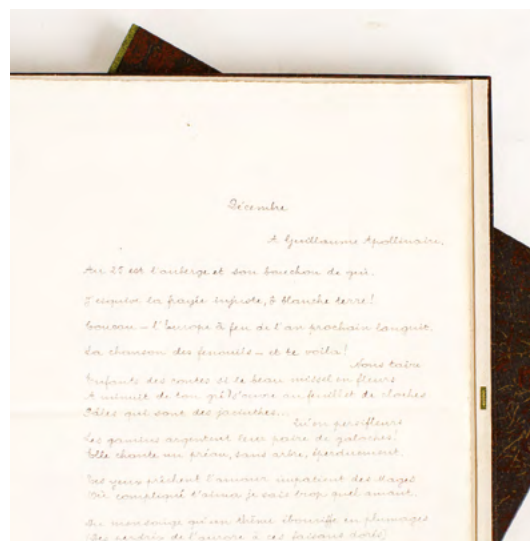 Décembre
A Guillaume Apollinaire,
Au 25 est l'auberge et son bouchon de gui.
J'esquive la frayée injuste, ô blanche terre!
Coucou – l'Europe à feu de l'an prochain languit.
La chanson des fenouils – et te voilà!
Nous taire
Enfants des contes si le beau missel en fleurs
A minuit de ton gel s'ouvre au feuillet de cloches
Pâles qui sont des jacinthes...
Qu'en persifleurs
Les gamins argentent leur paire de galoches!
Elle chante un préau, sans arbre, éperdument.
Tes yeux prêchent l'amour impatient des Mages
compliqué t'aimer je sais trop quel amant.
Du mensonge qu'un thème ébouriffe en plumages
Les perdrix de l'aurore à ces faisans dorés,